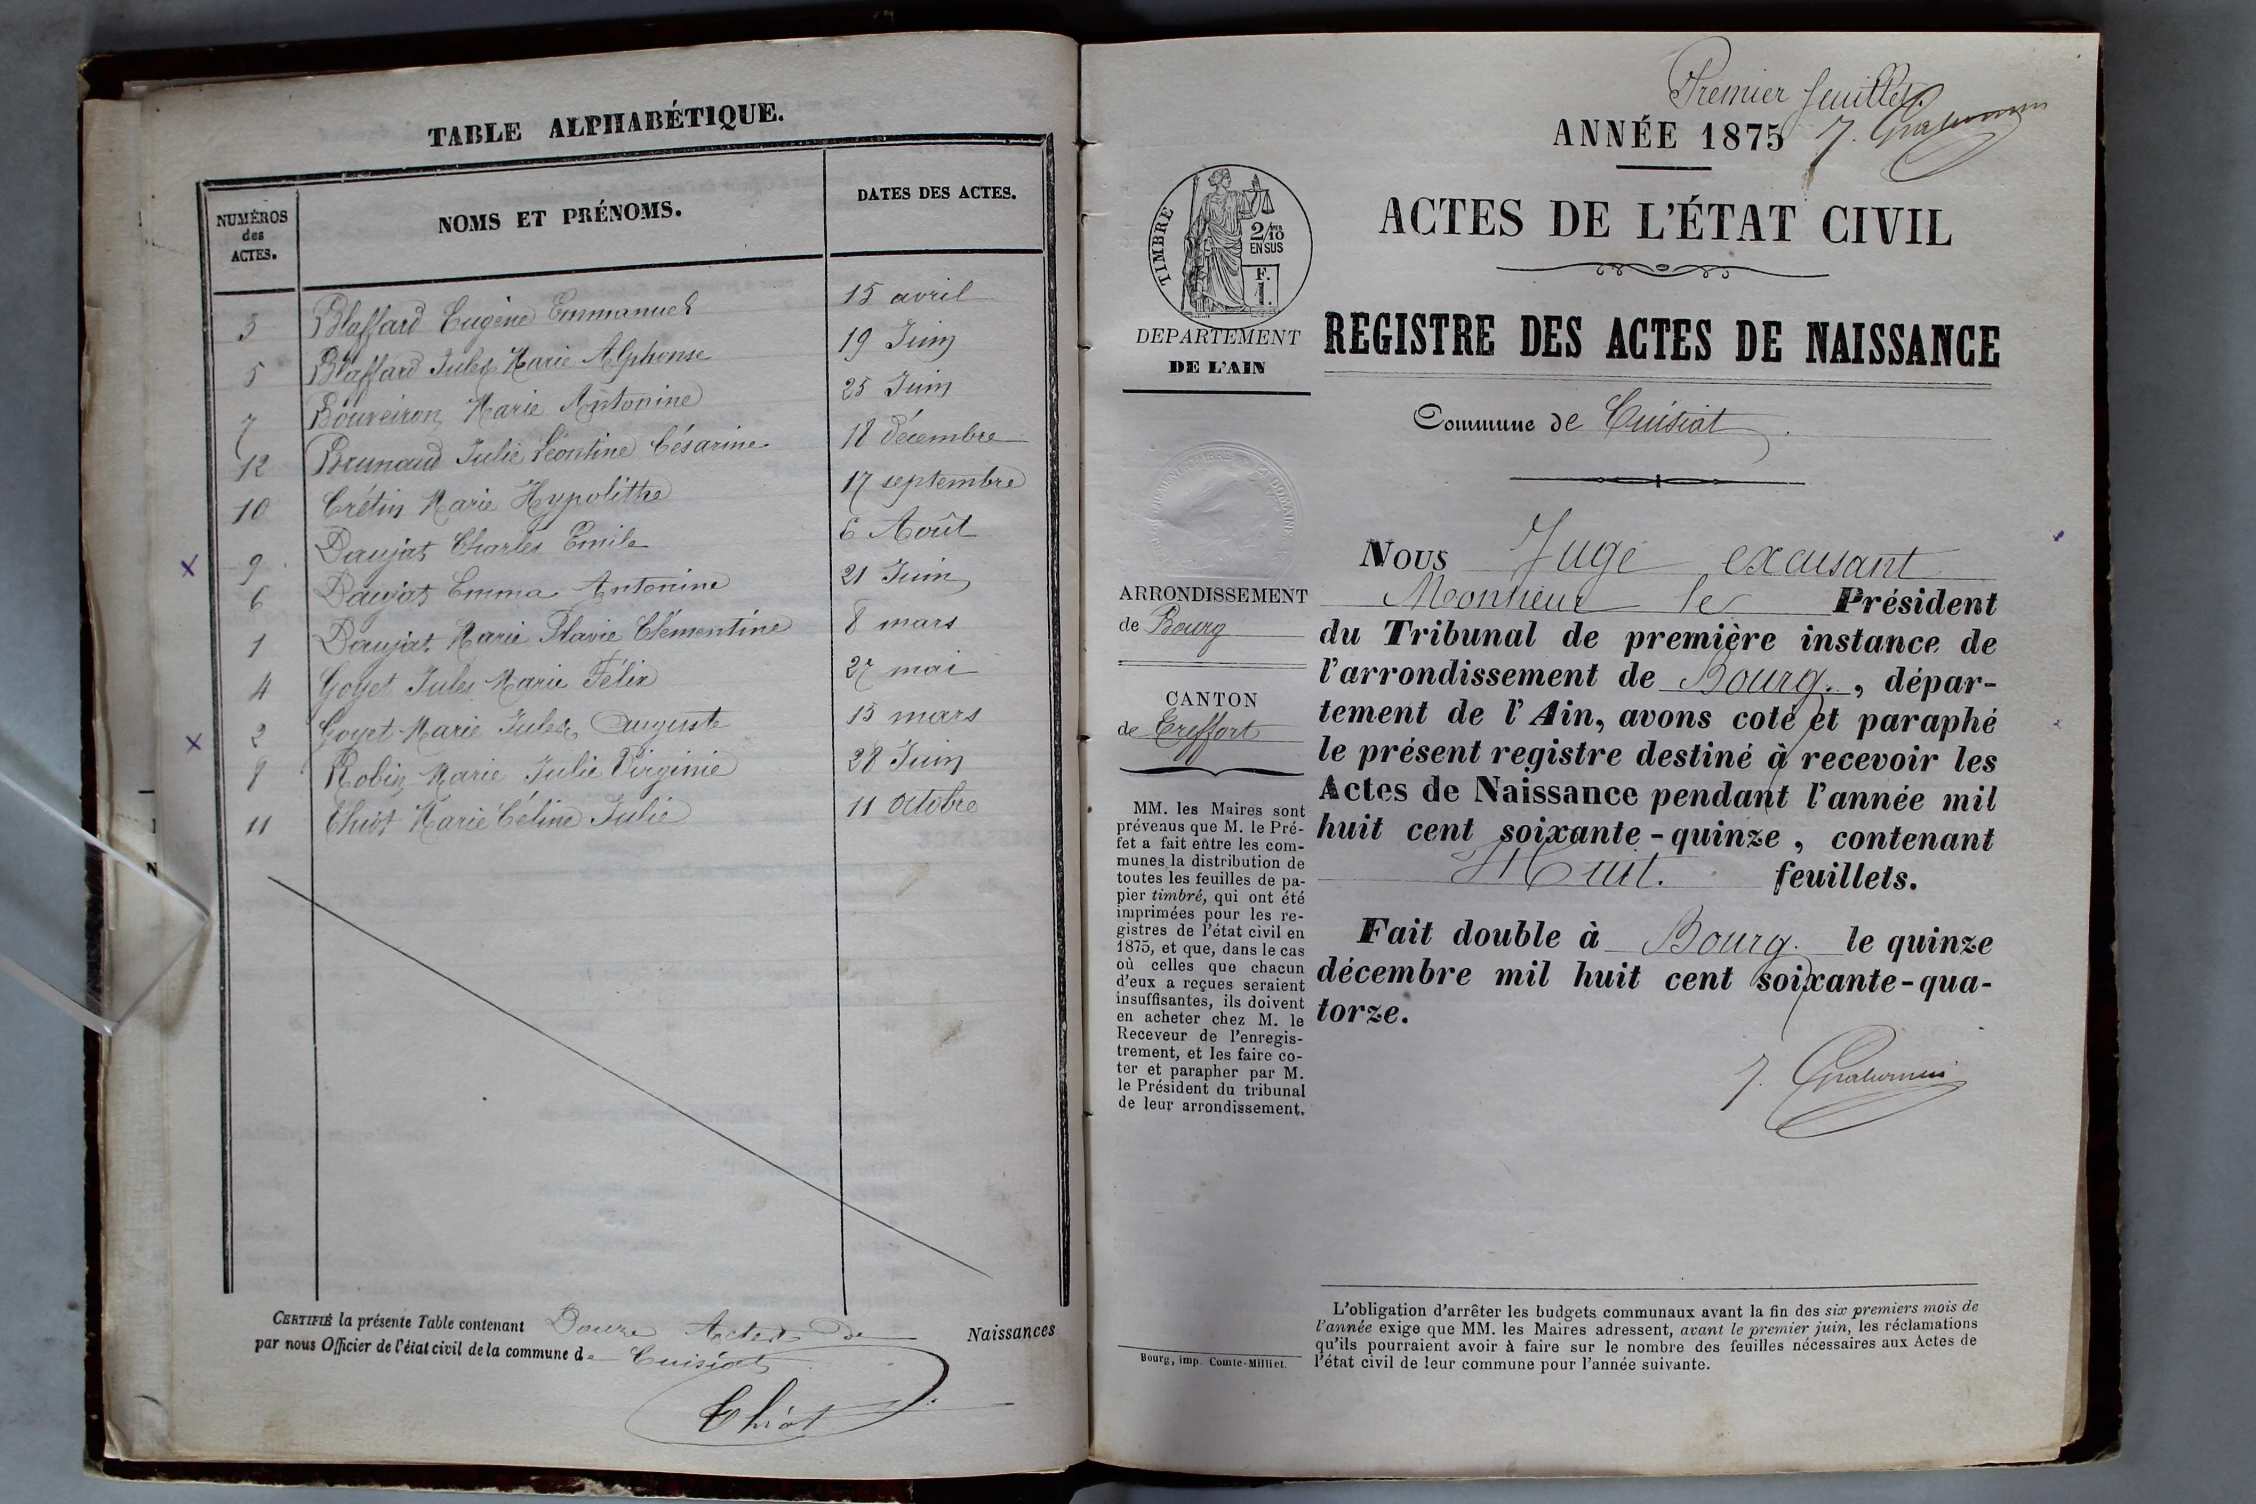 TABLE ALPHABÉTIQUE.
NUMÉROS des ACTES. NOMS ET PRÉNOMS. DATES DES ACTES.
3 Blaffard Eugène Emmanuel 15 avril
5 Blaffard Jules Marie Alphonse 19 Juin
7 Bouveiron Marie Antonine 25 Juin
12 Brunaud Julie Léontine Césarine 18 décembre
10 Crétin Marie Hypolithe 17 septembre
x 9 Daujat Charles Emile 6 Août
6 Daujat Emma Antonine 21 Juin
1 Daujat Marie Flavie Clémentine 8 mars
4 Goyet Jules Marie Félix 27 mai
x 2 Goyet Marie Jules Auguste 15 mars
8 Robin Marie Julie Virginie 28 Juin
11 Thiot Marie Céline Julie 11 octobre
CERTIFIÉ la présente Table contenant Douze Actes de Naissances
par nous Officier de l'état civil de la commune de Cuisiat
Thiot
Premier feuillet.
ANNÉE 1875
ACTES DE L'ÉTAT CIVIL
TIMBRE
2/10
EN SUS
F.
1.
DEPARTEMENT
DE L'AIN
REGISTRE DES ACTES DE NAISSANCE
Commune de Cuisiat
ARRONDISSEMENT
de Bourg
CANTON
de Treffort
MM. les Maires sont
prévenus que M. le Pré-
fet a fait entre les com-
munes la distribution de
toutes les feuilles de pa-
pier timbré, qui ont été
imprimées pour les re-
gistres de l'état civil en
1875, et que, dans le cas
où celles que chacun
d'eux a reçues seraient
insuffisantes, ils doivent
en acheter chez M. le
Receveur de l'enregis-
trement, et les faire co-
ter et parapher par M.
le Président du tribunal
de leur arrondissement.
Bourg, imp. Comte-Milliet.
NOUS Juge excusant
Monsieur le Président
du Tribunal de première instance de
l'arrondissement de Bourg., dépar-
tement de l'Ain, avons coté et paraphé
le présent registre destiné à recevoir les
Actes de Naissance pendant l'année mil
huit cent soixante-quinze, contenant
Huit. feuillets.
Fait double à Bourg. le quinze
décembre mil huit cent soixante-qua-
torze.
L'obligation d'arrêter les budgets communaux avant la fin des six premiers mois de
l'année exige que MM. les Maires adressent, avant le premier juin, les réclamations
qu'ils pourraient avoir à faire sur le nombre des feuilles nécessaires aux Actes de
l'état civil de leur commune pour l'année suivante.